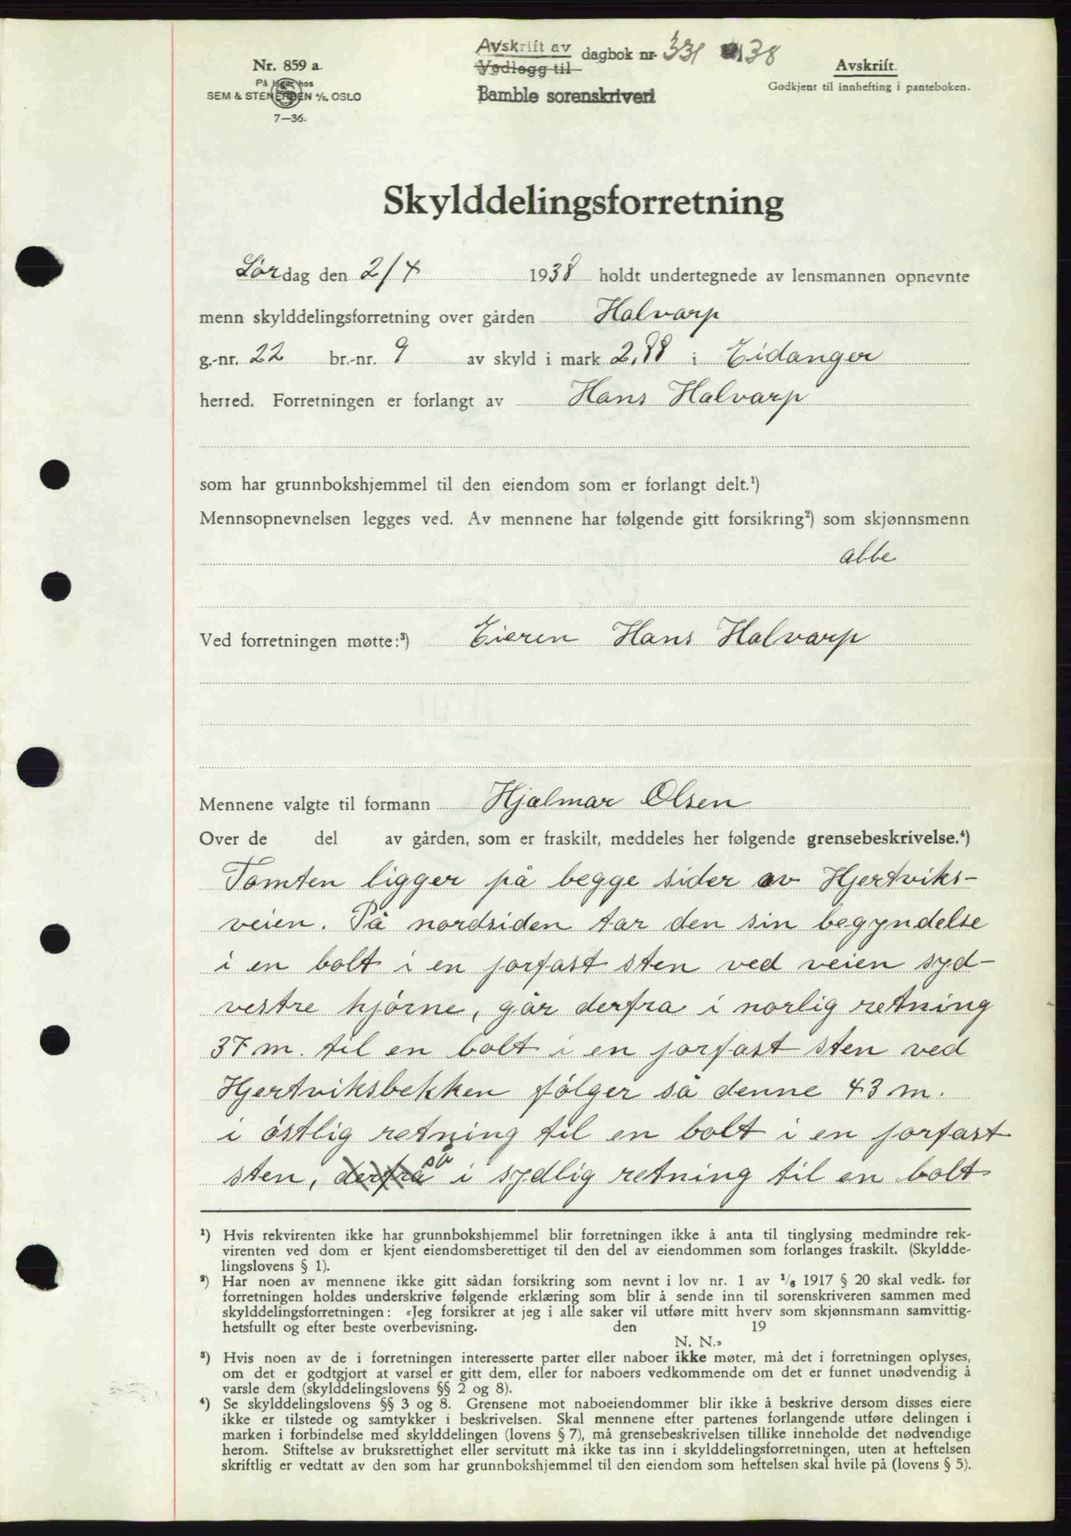 Avskrift av
Vedlegg til
dagbok nr. 331 1938
Bamble sorenskriveri
Nr. 859 a.
På lager hos
SEM & STENERSEN A/S, OSLO
7—36.
Avskrift.
Godkjent til innhefting i panteboken.
Skylddelingsforretning
Lørdag den 2/4 1938 holdt undertegnede av lensmannen opnevnte
menn skylddelingsforretning over gården Halvarp
g.-nr. 22 br.-nr. 9 av skyld i mark 2,88 i Eidanger
herred. Forretningen er forlangt av Hans Halvarp
som har grunnbokshjemmel til den eiendom som er forlangt delt.¹)
Mennsopnevnelsen legges ved. Av mennene har følgende gitt forsikring²) som skjønnsmenn
alle
Ved forretningen møtte:³) Eieren Hans Halvarp
Mennene valgte til formann Hjalmar Olsen
Over de del av gården, som er fraskilt, meddeles her følgende grensebeskrivelse.⁴)
Tomten ligger på begge sider av Hjertviks-
veien. På nordsiden tar den sin begyndelse
i en bolt i en jorfast sten ved veien syd-
vestre hjørne, går derfra i norlig retning
37 m. til en bolt i en jorfast sten ved
Hjertviksbekken følger så denne 43 m.
i østlig retning til en bolt i en jorfast
sten, derfra så i sydlig retning til en bolt
¹) Hvis rekvirenten ikke har grunnbokshjemmel blir forretningen ikke å anta til tinglysing medmindre rek-
virenten ved dom er kjent eiendomsberettiget til den del av eiendommen som forlanges fraskilt. (Skyldde-
lingslovens § 1).
²) Har noen av mennene ikke gitt sådan forsikring som nevnt i lov nr. 1 av 1/6 1917 § 20 skal vedk. før
forretningen holdes underskrive følgende erklæring som blir å sende inn til sorenskriveren sammen med
skylddelingsforretningen: «Jeg forsikrer at jeg i alle saker vil utføre mitt hverv som skjønnsmann samvittig-
hetsfullt og efter beste overbevisning. den 19
N. N.»
³) Hvis noen av de i forretningen interesserte parter eller naboer ikke møter, må det i forretningen oplyses,
om det er godtgjort at varsel er gitt dem, eller for naboers vedkommende om det er funnet unødvendig å
varsle dem (skylddelingslovens §§ 2 og 8).
⁴) Se skylddelingslovens §§ 3 og 8. Grensene mot naboeiendommer blir ikke å beskrive dersom disses eiere
ikke er tilstede og samtykker i beskrivelsen. Skal mennene efter partenes forlangende utføre delingen i
marken i forbindelse med skylddelingen (lovens § 7), må grensebeskrivelsen tillike inneholde det nødvendige
herom. Stiftelse av bruksrettighet eller servitutt må ikke tas inn i skylddelingsforretningen, uten at heftelsen
skriftlig er vedtatt av den som har grunnbokshjemmel til den eiendom som heftelsen skal hvile på (lovens § 5).